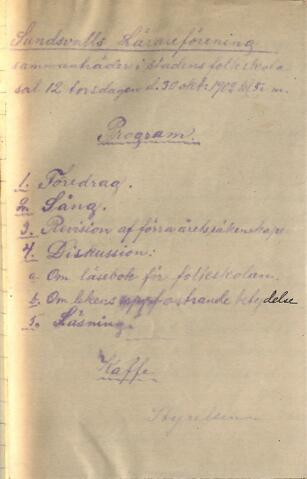 Sundsvalls Lärareförening
sammanträder i stadens folkskola
sal 12 torsdagen d. 30 okt. 1902 kl. 5 e. m.
Program.
1. Föredrag.
2. Sång.
3. Revision af förra årets räkenskaper
4. Diskussion:
a. Om läsebok för folkskolan.
b. Om lekens uppfostrande betydelse
5. Läsning.
Kaffe
Styrelsen